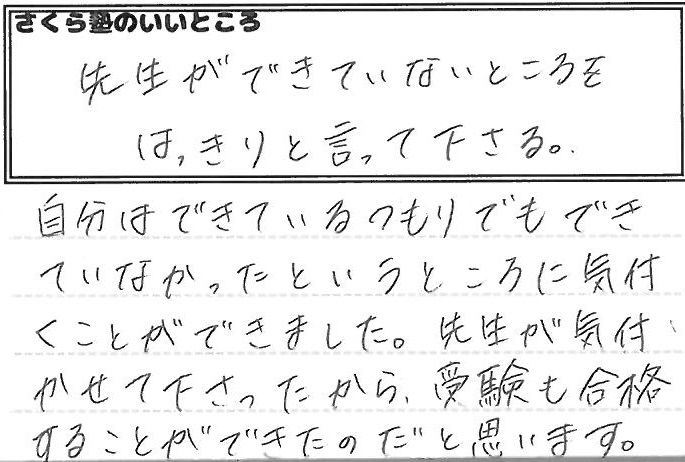 さくら塾のいいところ
先生ができていないところを
はっきりと言って下さる。
自分はできているつもりでもでき
ていなかったというところに気付
くことができました。先生が気付
かせて下さったから、受験も合格
することができたのだと思います。